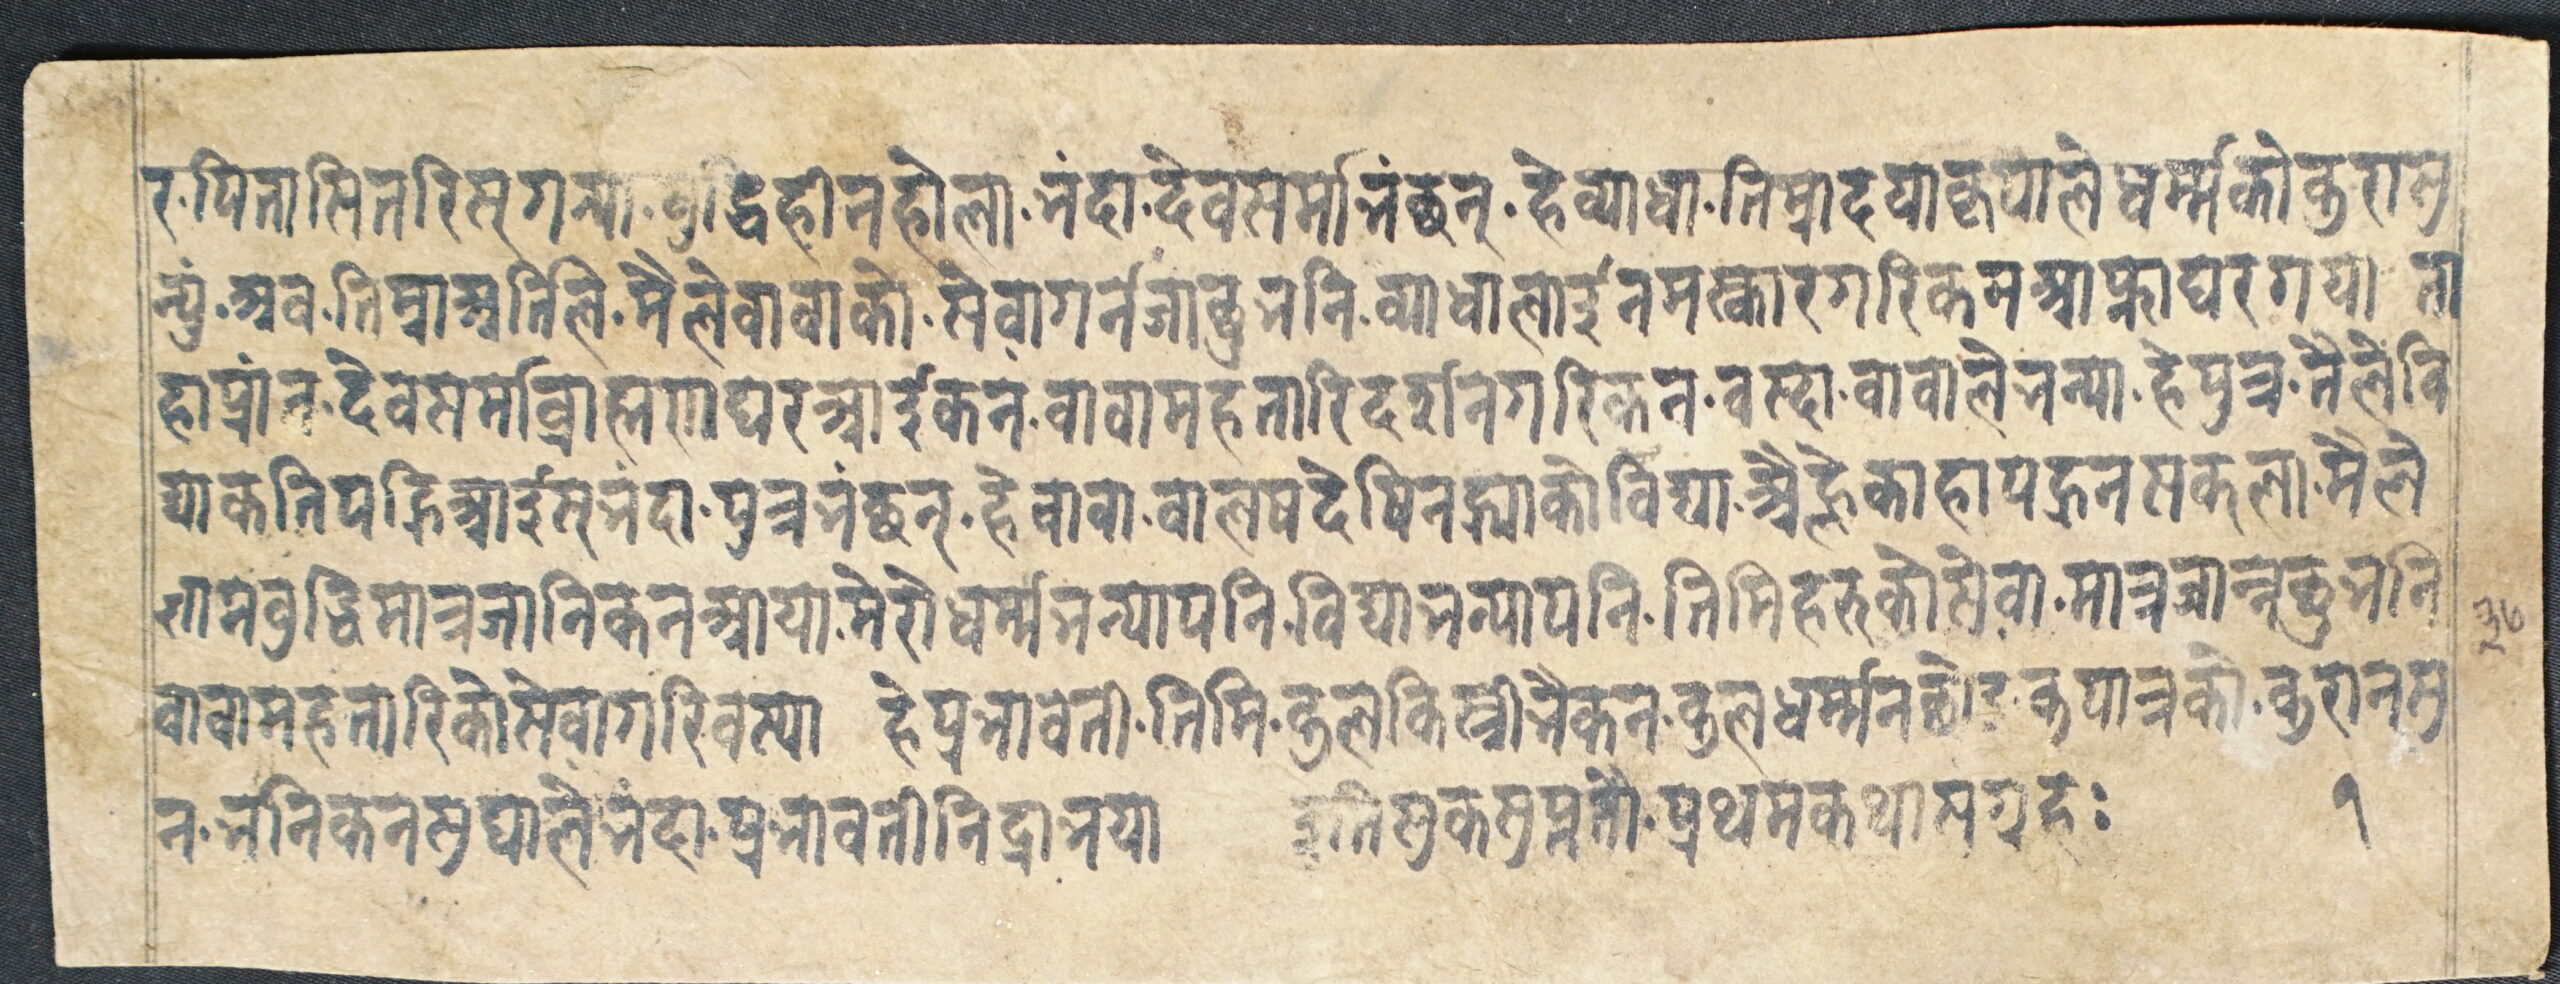 र॰पितासितरिस्गन्या॰वुद्धिहीनहोला॰भंदा॰देवसर्माभंछन्॰हेव्याधा॰तिम्रादयाकृपालेधर्म्मकोकुरासु
न्युं॰अव॰तिम्राअर्तिले॰मैलेवावाको॰सेवागर्नजांछुभनि॰व्याधालाईनमस्कारगरिकनआफ्नाघरगया ता
हाप्रांन॰देवसर्माव्राह्मणघरआईकन॰वावामहतारिदर्शनगरिकन॰वस्दा॰वावालेभन्या॰हेपुत्र॰तैलेवि
द्याकतिपढिआईस्भंदा॰पुत्रभंछन्॰हेवावा॰वालषदेषिनपढ्याकोविद्या॰अैह्लेकाहापढनसक्ला॰मैले
ज्ञामवुद्धिमात्रजानिकनआया॰मेरोधर्म्मभन्यापनि॰विद्याभन्यापनि॰तिमिहरुकोसेवा॰मात्रजान्नछुभनि
वावामहतारिकोसेवागरिवस्या हेप्रभावती॰तिमि॰कुलकिस्त्रीभैकन॰कुलधर्म्मनछोड॰कुपात्रको॰कुरानसु
न॰भनिकनसुघालेभंदा॰प्रभावतीनिद्राभया इतिसुकसप्ततौ॰प्रथमकथासग्रहः १
३७